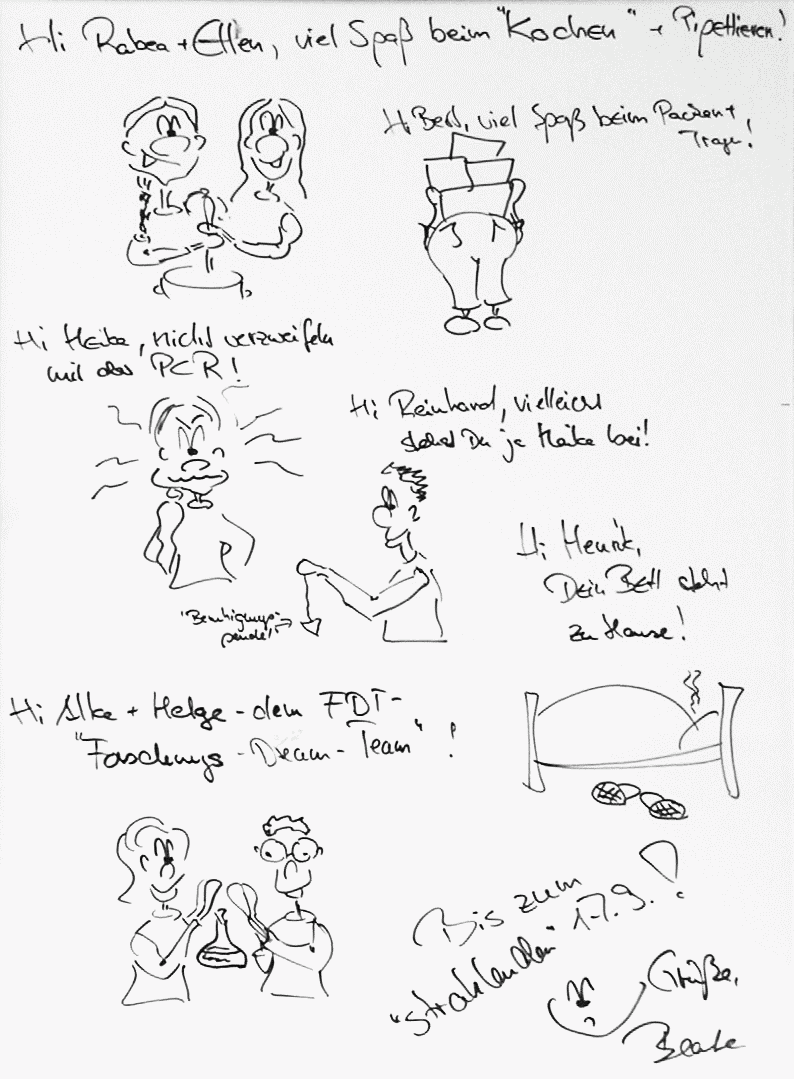 Hi Rabea + Ellen, viel Spaß beim "Kochen" + Pipettieren!
Hi Bert, viel Spaß beim Packen +
Tragen!
Hi Heike, nicht verzweifeln
mit der PCR!
Hi Reinhard, vielleicht
stehst Du ja Heike bei!
"Beruhigungs-
pendel"
Hi Henrik,
Dein Bett steht
zu Hause!
Hi Silke + Helge - dem FDT-
"Forschungs-Dream-Team"!
Bis zum
"strahlenden" 17.9.!
Grüße,
Beate